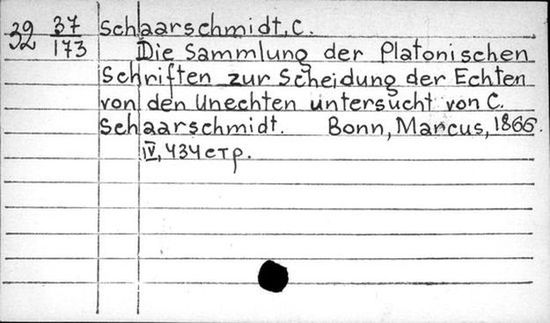 39/32 37/173 Schaarschmidt, C.
Die Sammlung der Platonischen
Schriften zur Scheidung der Echten
von den Unechten untersucht von C.
Schaarschmidt. Bonn, Marcus, 1866.
IV, 434 стр.